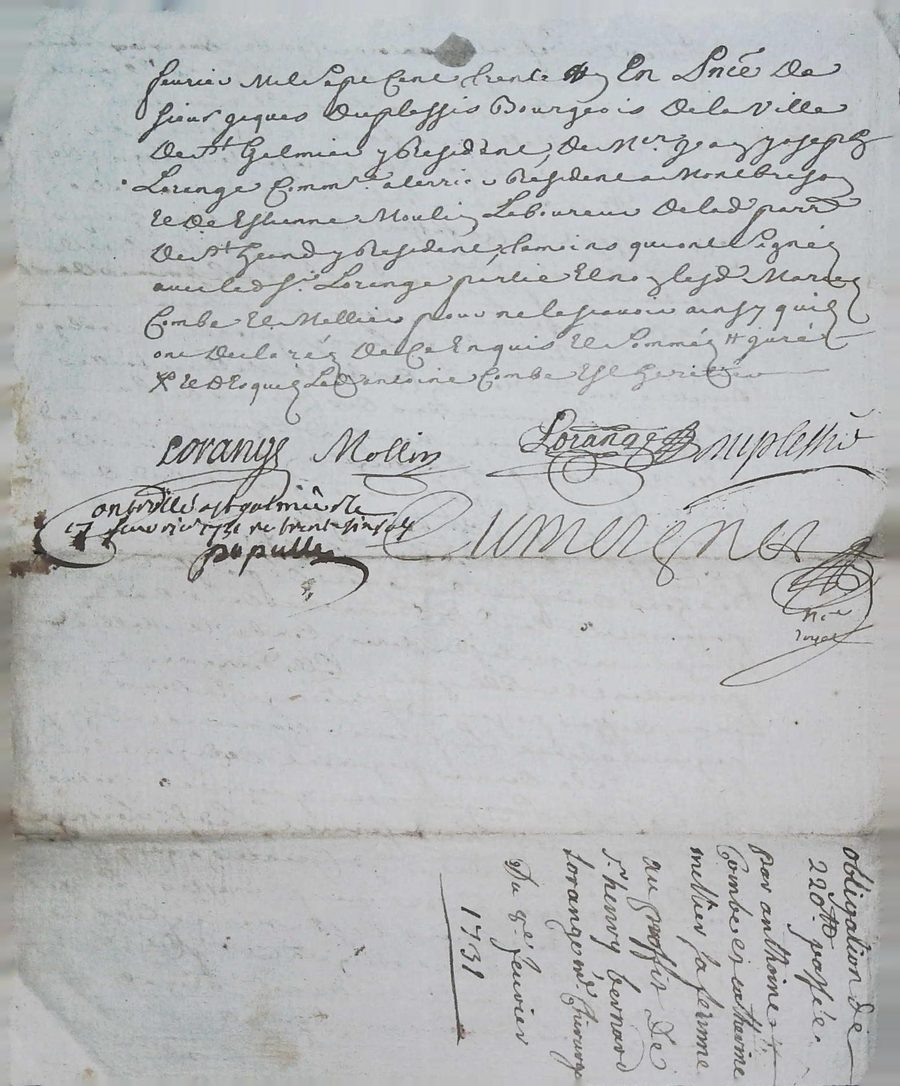 feurier Mil Sept Cent Trente Un En Pnce De
sieur Jeques Duplessis Bourgeois De la Ville
De st Galmier y Residant, De Mer Jean Joseph
Lorange Commre a terrier Residant a Montbrison
Et De Estienne Moulin Laboureur De lad parr
De st y Residant, temoins qui ont Signéz
auec led sr Lorange partie Et no lesd Mariez
Combe Et Mellier pour ne le scauoir ainsy quilz
ont Declaréz De Ce Enquis Et Somméz
Led antoine Combe Est
Lorange Mollin Lorange Duplessis
Controllé a st galmier le
17 feurier 1731
pupulle
Dumeynet
Nore
royal
obligation de
220 ## passée
par anthoine
Combe et catherine
mellier sa femme
au proffit De
sr henry bernard
Lorange me Chirurg
Du 4e feurier
1731